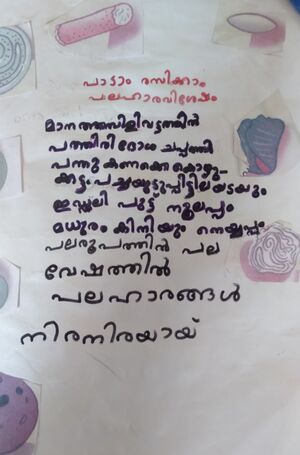 പാടാം രസിക്കാം
പലഹാരവിശേഷം
മാനത്തമ്പിളിവട്ടത്തിൽ
പത്തിരി ദോശ ചപ്പാത്തി
പന്തു കണക്കെ കൊഴു-
ക്കട്ട പച്ചയുടുപ്പിട്ടിലയടയും
ഇഡ്ഡലി പുട്ട് നൂലപ്പം
മധുരം കിനിയും നെയ്യപ്പം
പലരൂപത്തിൽ പല
വേഷത്തിൽ
പലഹാരങ്ങൾ
നിരനിരയായ്